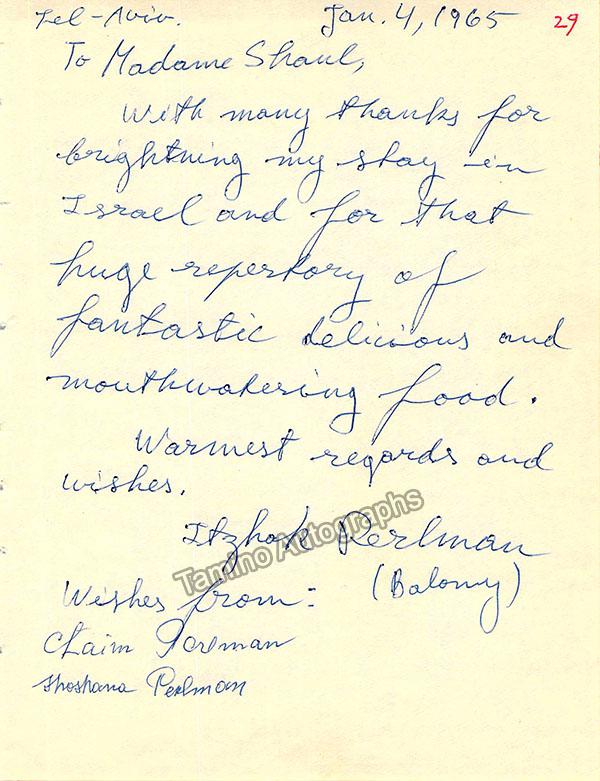 Tel-Aviv. Jan. 4, 1965 29
To Madame Shaul,
With many thanks for
brightning my stay in
Israel and for that
huge repertory of
fantastic delicious and
mouthwatering food.
Warmest regards and
wishes.
Itzhak Perlman
(Balomy)
Tamino Autographs
Wishes from:
Chaim Perlman
Shoshana Perlman